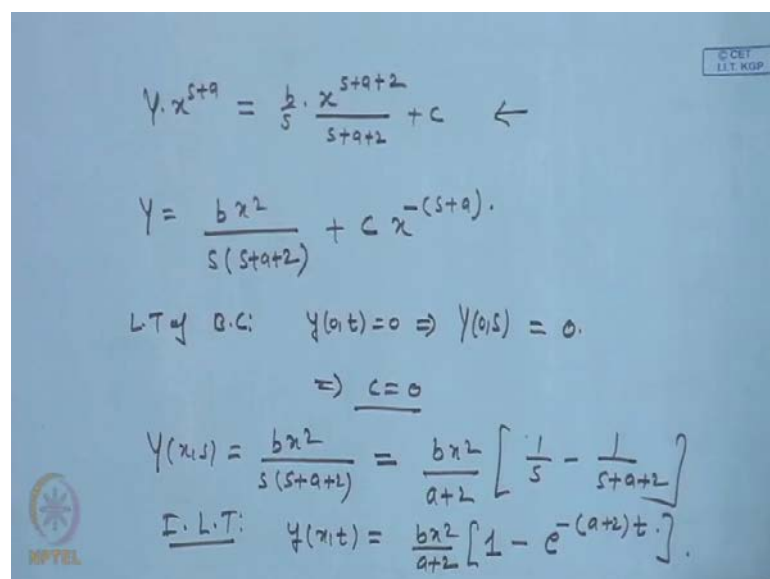 © CET
I.I.T. KGP
Y. x^{s+a} = b/s . x^{s+a+2}/(s+a+2) + c ←
Y = bx²/(s(s+a+2)) + c x^{-(s+a)}.
L.T of B.C: y(0,t)=0 ⇒ Y(0,s) = 0.
⇒ c=0
Y(x,s) = bx²/(s(s+a+2)) = bx²/(a+2) [1/s - 1/(s+a+2)]
I.L.T: y(x,t) = bx²/(a+2) [1 - e^{-(a+2)t}].
NPTEL